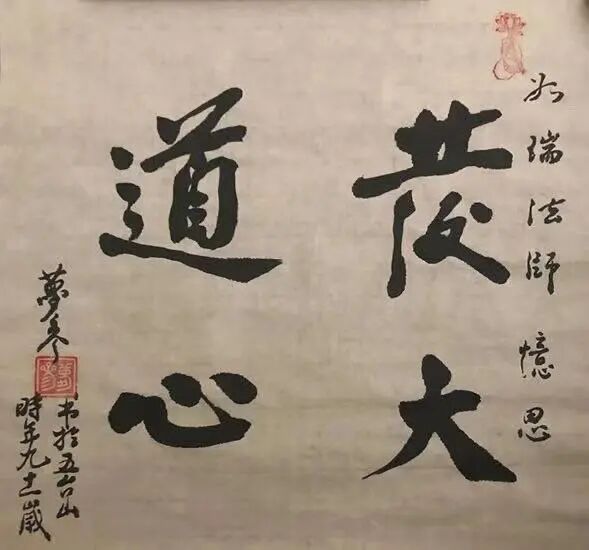 如瑞法師 憶思
發大
道心
夢參
书於五台山
時年九十一歲